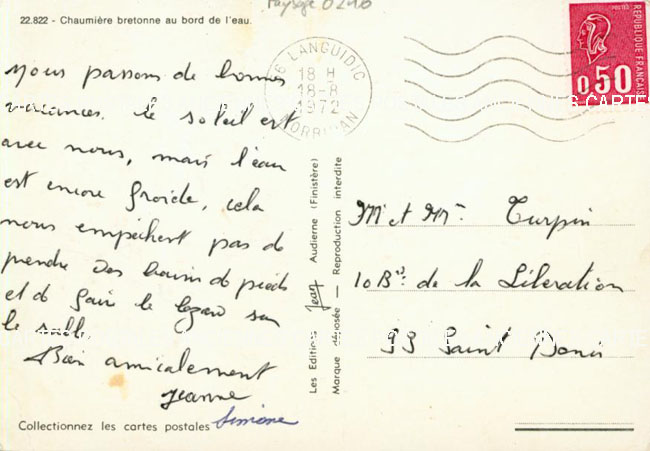 Paysage
22.822 - Chaumière bretonne au bord de l'eau.
56 LANGUIDIC
18 H
18-8
1972
MORBIHAN
POSTES
REPUBLIQUE FRANÇAISE
0,50
nous passons de bonnes
vacances. le soleil est
avec nous, mais l'eau
est encore froide, cela
nous empêchent pas de
prendre des bains de pieds
et de faire le lézard sur
le sable
Bien amicalement
Jeanne
Simone
Collectionnez les cartes postales
Les Editions Jean Audierne (Finistère)
Marque déposée — Reproduction interdite
M et Mme Turpin
10 Bd de la Libération
93 Saint Denis
CARTES